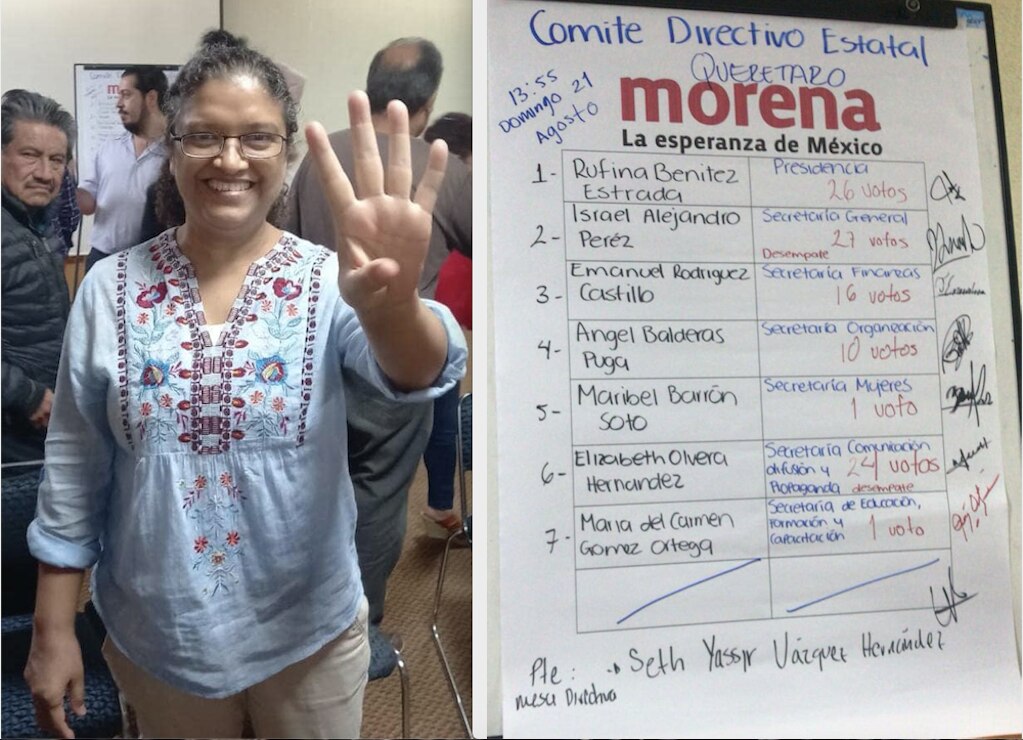 Comite Directivo Estatal
QUERETARO
13:55
Domingo 21
Agosto
morena
La esperanza de México
1- Rufina Benitez Estrada
Presidencia
26 votos
2- Israel Alejandro Peréz
Secretaría General
27 votos
Desempate
3- Emanuel Rodriguez Castillo
Secretaría Finanzas
16 votos
4- Angel Balderas Puga
Secretaría Organización
10 votos
5- Maribel Barrón Soto
Secretaría Mujeres
1 voto
6- Elizabeth Olvera Hernandez
Secretaría Comunicación
difusión y 24 votos
Propaganda desempate
7- Maria del Carmen Gomez Ortega
Secretaría de Educación,
Formación y
Capacitación 1 voto
Pte: Seth Yassir Vázquez Hernández
mesa Directiva